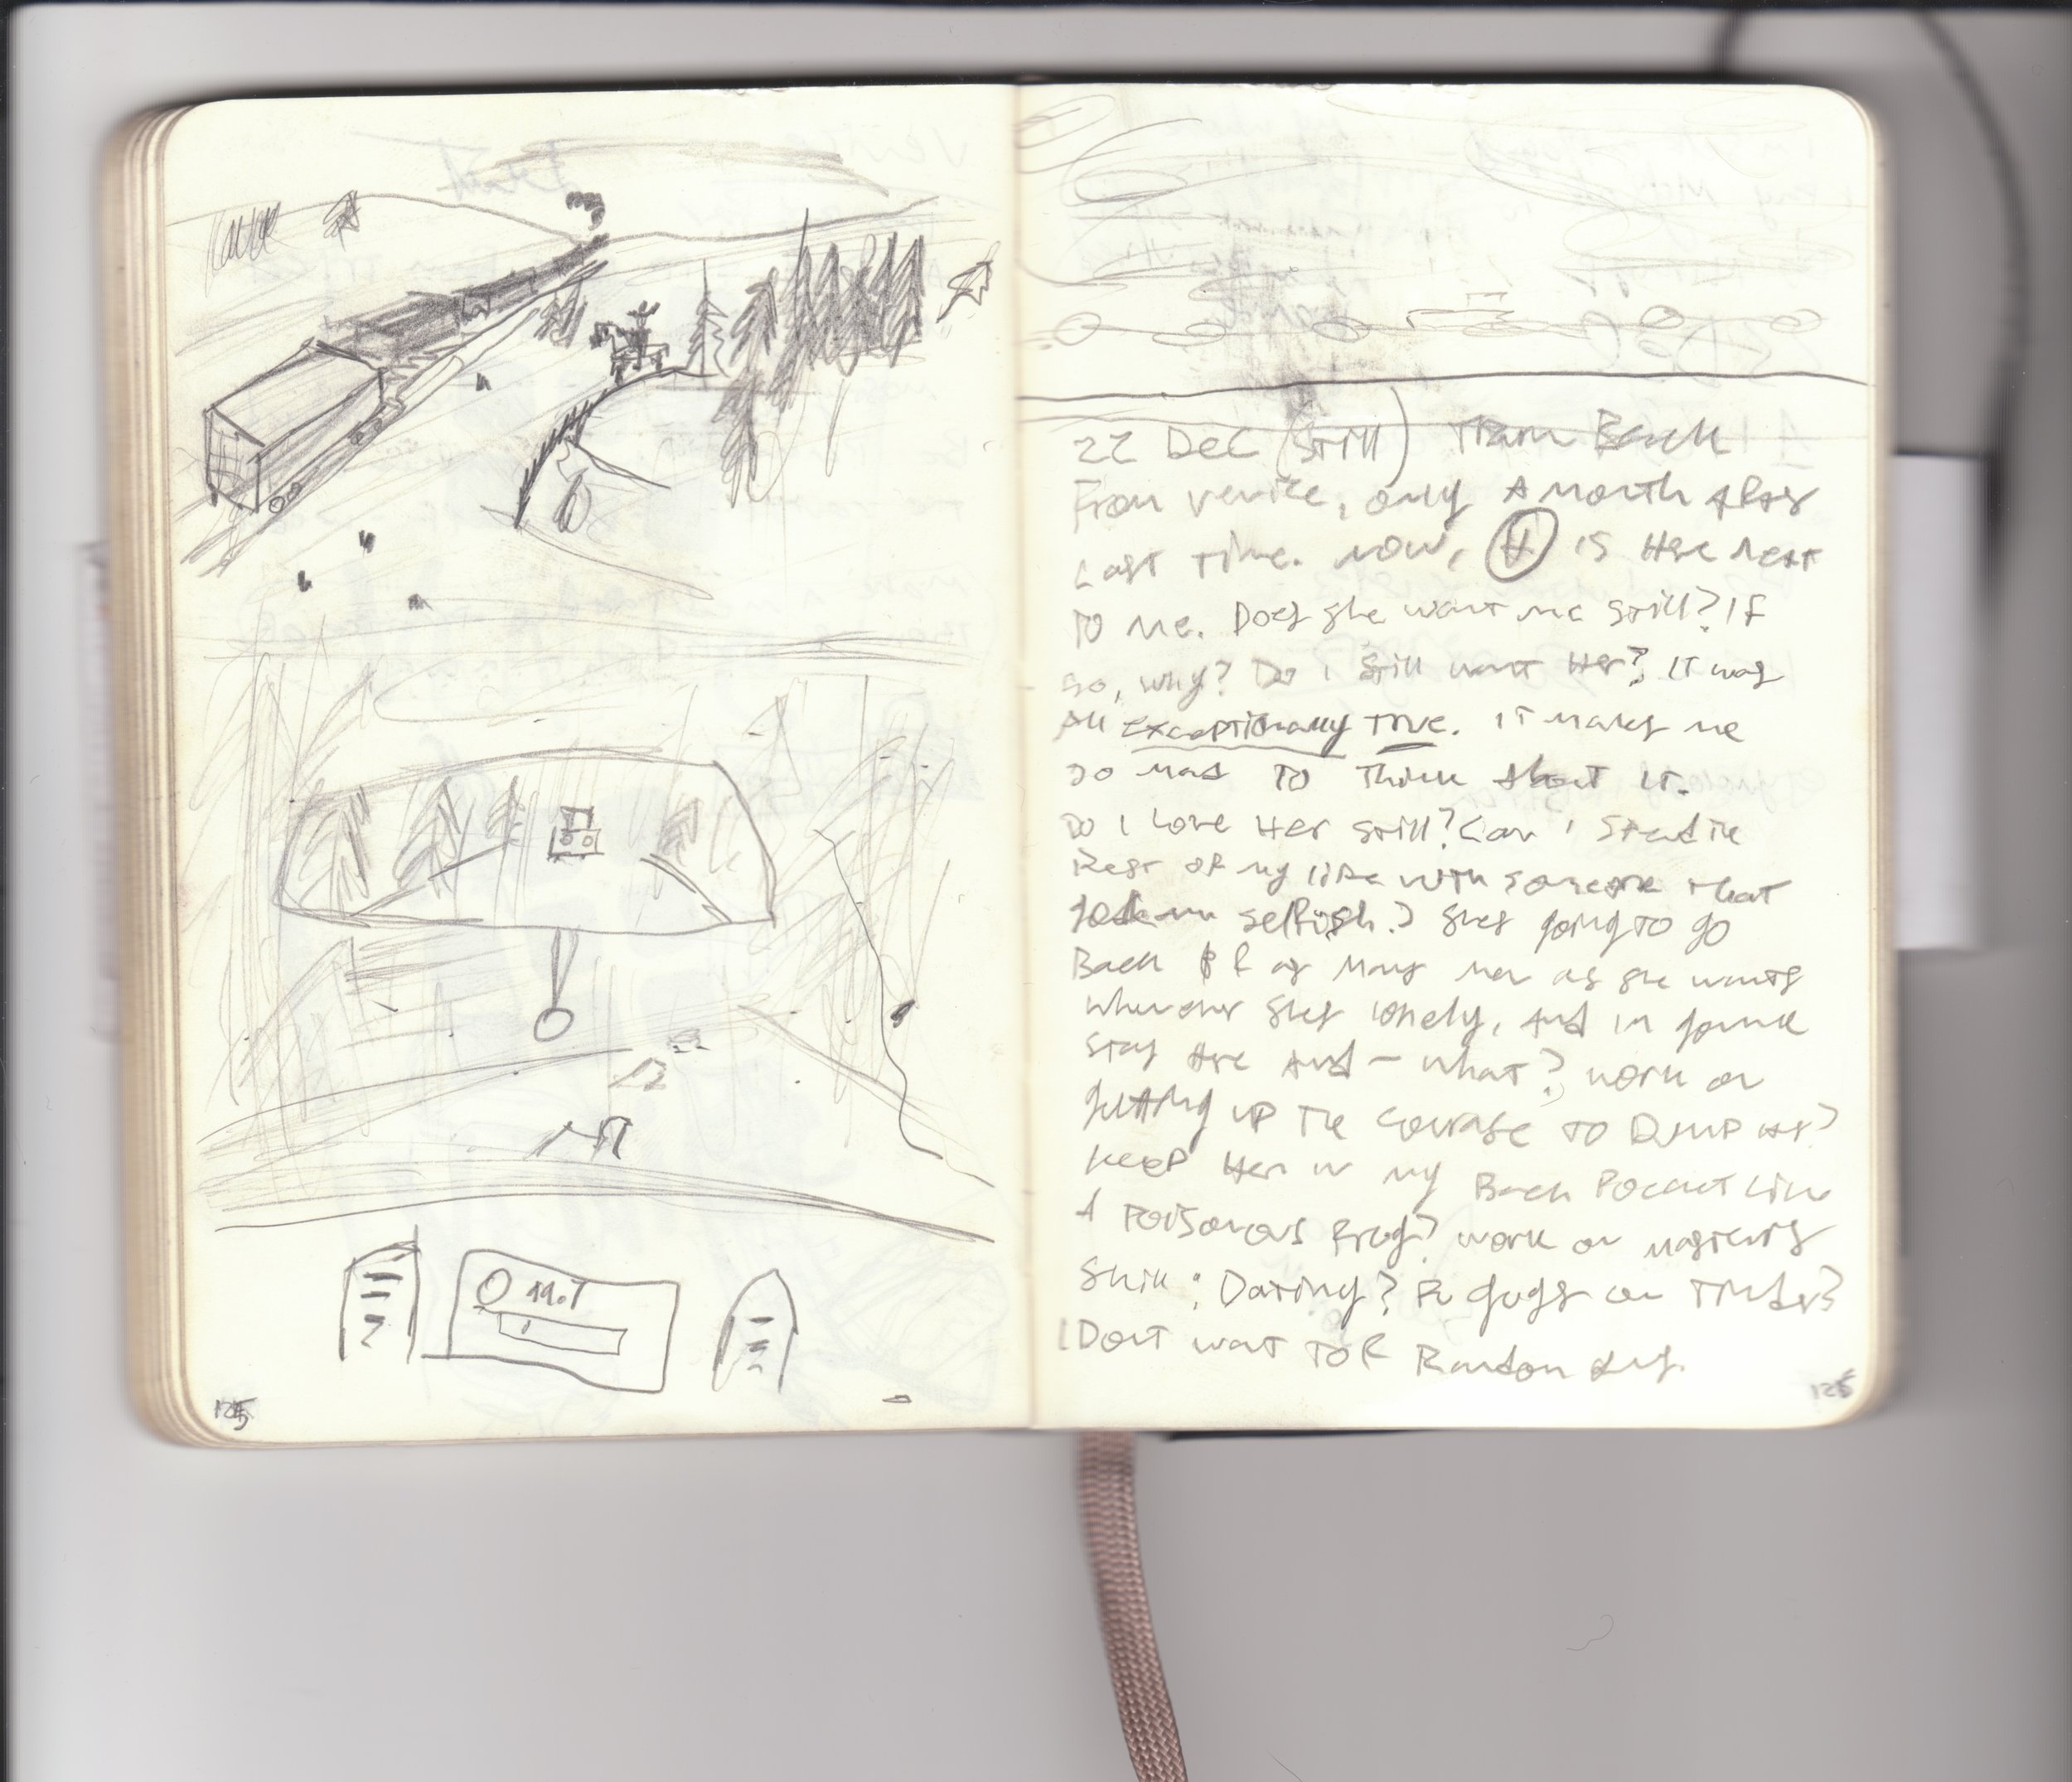 19.7
125
22 Dec (still) Train Back
From Venice, only A month after
Last time. Now, H is Here next
To me. Does she want me still? If
so, why? Do I still want Her? It was
All exceptionally True. It makes me
so mad To Think About it.
Do I Love Her still? Can I spend the
Rest of my life with someone that
selfish? Shes going to go
Back & as many men as she wants
whenever shes lonely, And I'm gonna
stay Here And - what? work on
getting up The courage to Dump Her?
Keep Her in my Back Pocket Like
A Poisonous Frog? work on
skill: Dating? guys on Tinder?
I Dont want To Random guys.
125